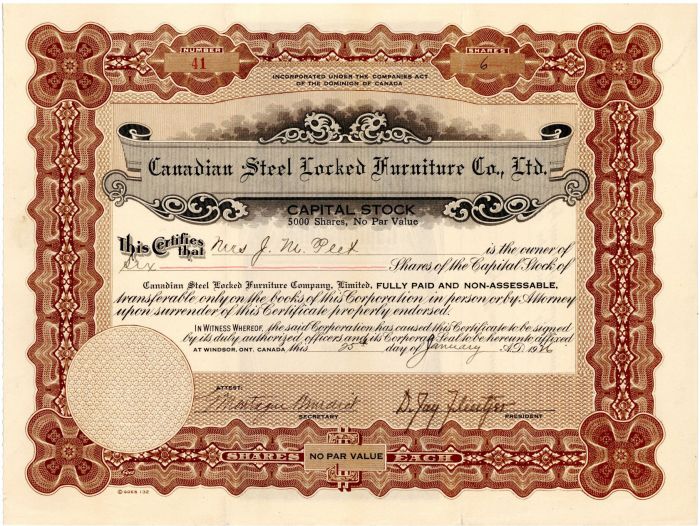 NUMBER
41
SHARES
6
INCORPORATED UNDER THE COMPANIES ACT
OF THE DOMINION OF CANADA
Canadian Steel Locked Furniture Co., Ltd.
CAPITAL STOCK
5000 Shares, No Par Value
This Certifies that Mrs J. M. Peet is the owner of
Six Shares of the Capital Stock of
Canadian Steel Locked Furniture Company, Limited, FULLY PAID AND NON-ASSESSABLE,
transferable only on the books of this Corporation in person or by Attorney
upon surrender of this Certificate properly endorsed.
IN WITNESS WHEREOF, the said Corporation has caused this Certificate to be signed
by its duly authorized officers and its Corporate Seal to be hereunto affixed
AT WINDSOR, ONT. CANADA this 25th day of January A.D. 1926
ATTEST:
SECRETARY
D. Jay
PRESIDENT
SHARES NO PAR VALUE EACH
© GOES 132